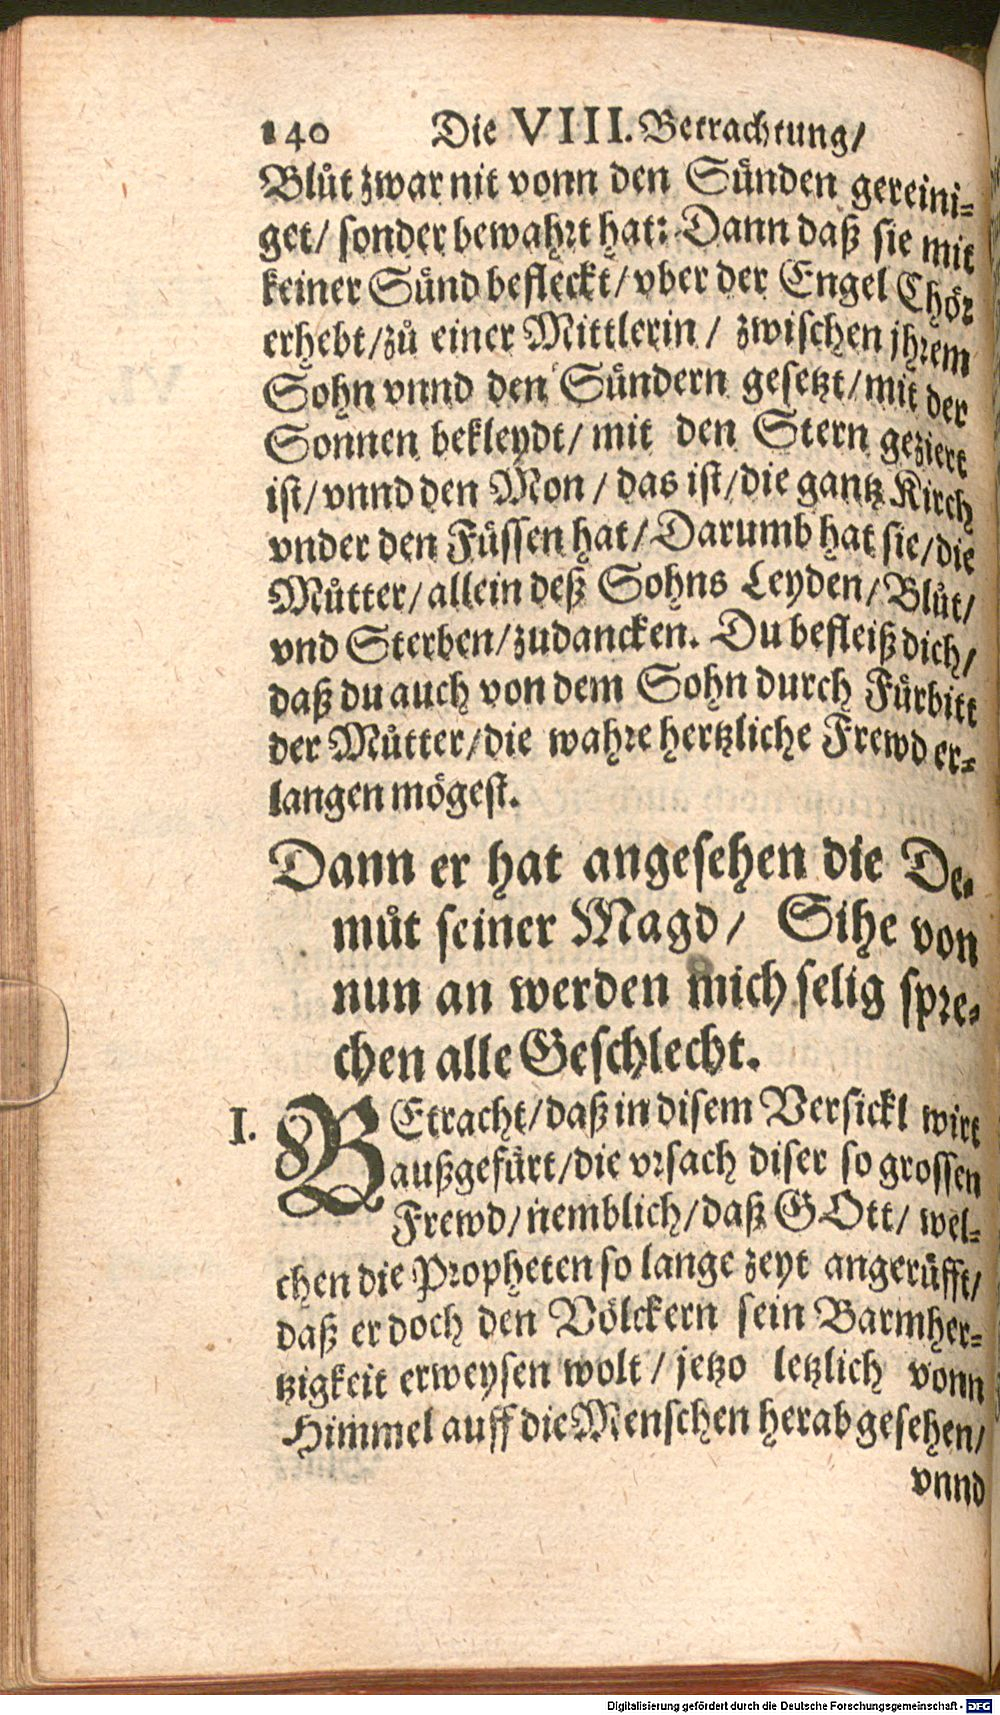 140 Die VIII. Betrachtung/
Blůt zwar nit vonn den Sünden gereini-
get/ sonder bewahrt hat: Dann daß sie mit
keiner Sünd befleckt/ vber der Engel Chör
erhebt/ zů einer Mittlerin/ zwischen jhrem
Sohn vnnd den Sündern gesetzt/ mit der
Sonnen bekleydt/ mit den Stern geziert
ist/ vnnd den Mon/ das ist/ die gantz Kirch
vnder den Füssen hat/ Darumb hat sie/ die
Můtter/ allein deß Sohns Leyden/ Blůt/
vnd Sterben/ zudancken. Du befleiß dich/
daß du auch von dem Sohn durch Fürbitt
der Můtter/ die wahre hertzliche Frewd er-
langen mögest.
Dann er hat angesehen die De-
můt seiner Magd/ Sihe von
nun an werden mich selig spre-
chen alle Geschlecht.
I. BEtracht/ daß in disem Versickl wirt
außgefürt/ die vrsach diser so grossen
Frewd/ nemblich/ daß GOtt/ wel-
chen die Propheten so lange zeyt angerüfft/
daß er doch den Völckern sein Barmher-
tzigkeit erweysen wolt/ jetzo letzlich vonn
Himmel auff die Menschen herab gesehen/
vnnd
Digitalisierung gefördert durch die Deutsche Forschungsgemeinschaft - DFG